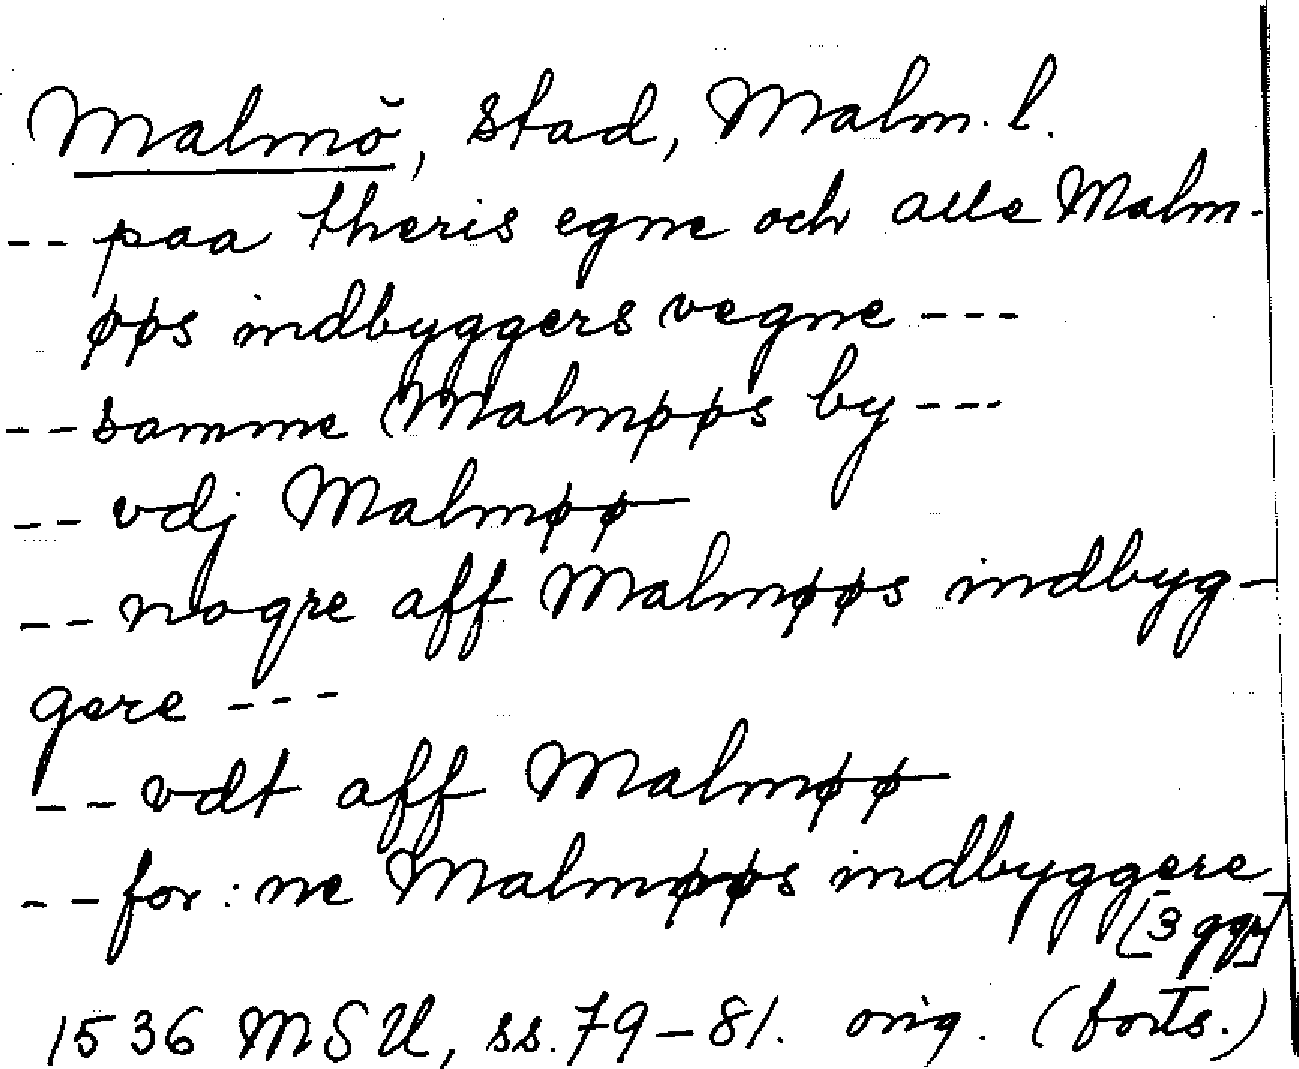 Malmö, stad, Malm. l.
-- paa theris egne och alle Malm-
øøs indbyggers vegne ---
-- samme Malmøøs by ---
-- vdj Malmøø
-- nogre aff Malmøøs indbyg-
gere ---
-- vdt aff Malmøø
-- for: ne Malmøøs indbyggere
[3 ggr]
1536 MSU, ss. 79-81. orig. (forts.)